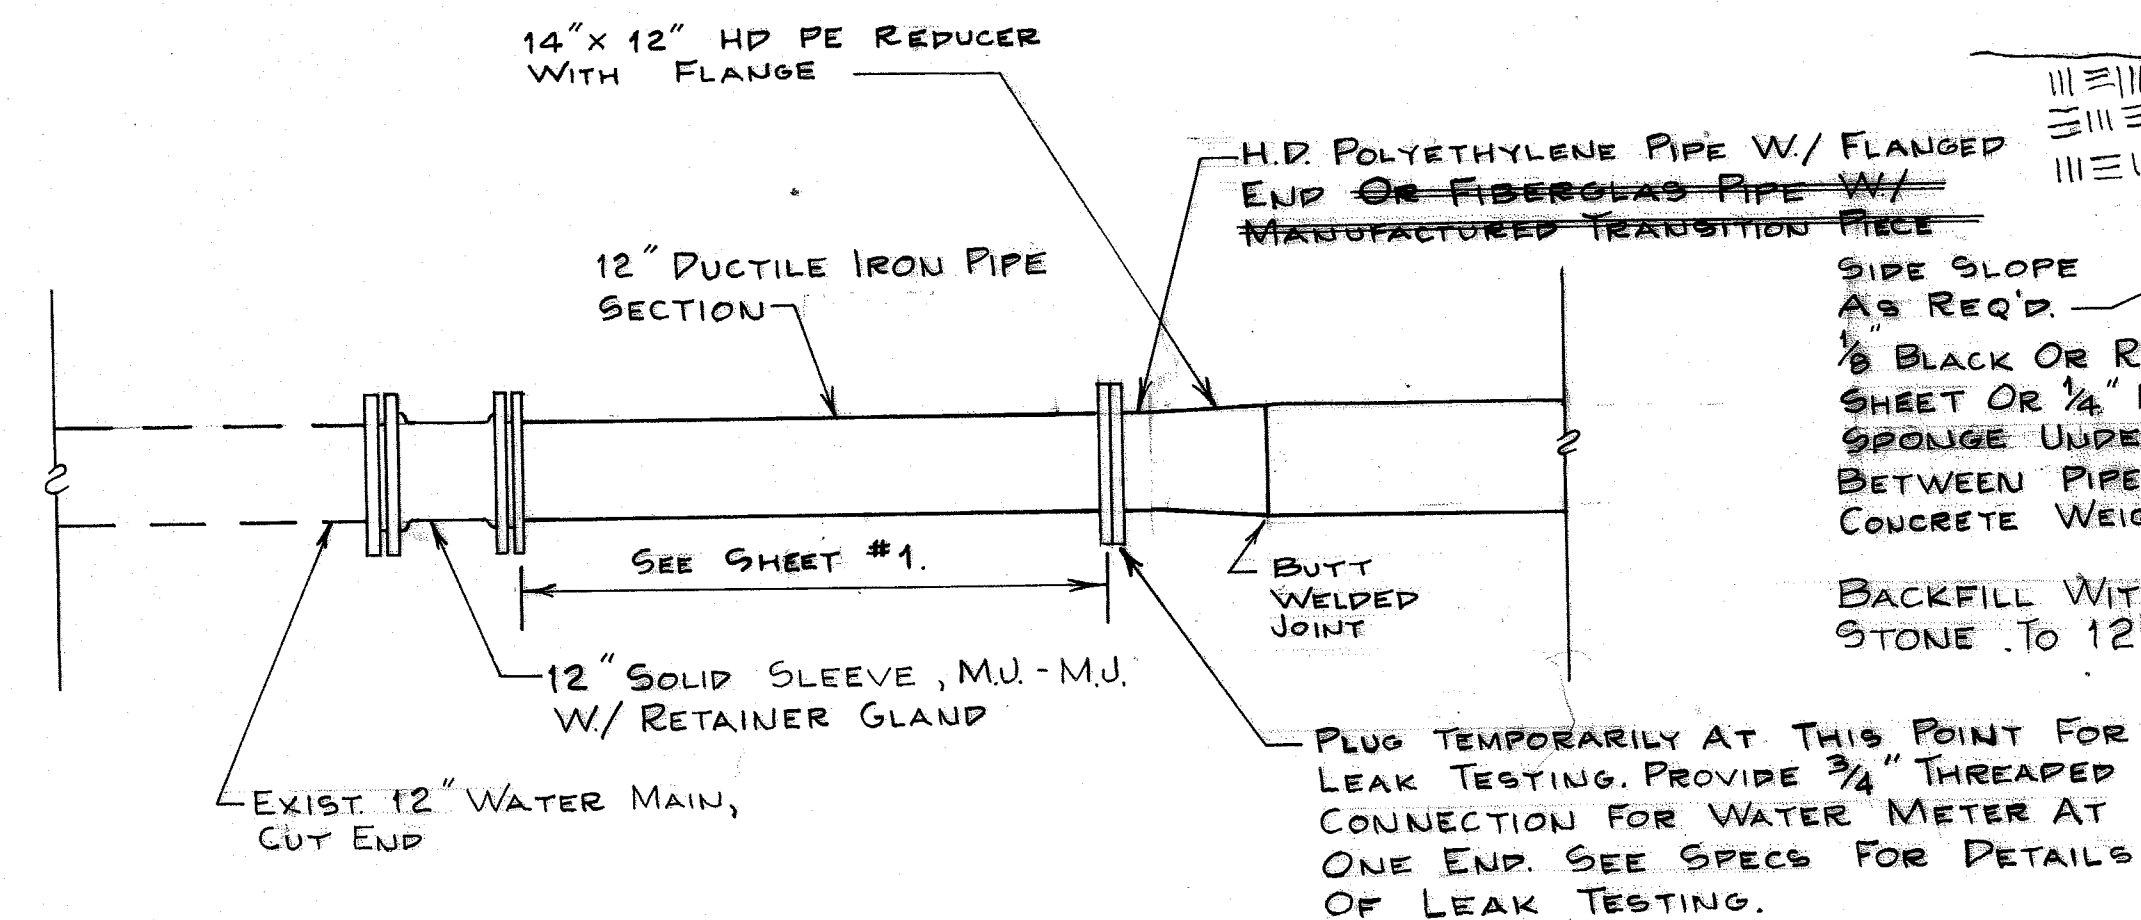 14" x 12" HD PE REDUCER
WITH FLANGE
H.D. POLYETHYLENE PIPE W./ FLANGED
END OR FIBERGLAS PIPE W/
MANUFACTURED TRANSITION PIECE
12" DUCTILE IRON PIPE
SECTION
SIDE SLOPE
AS REQ'D.
1/8" BLACK OR R
SHEET OR 1/4"
SPONGE UNDE
BETWEEN PIPE
CONCRETE WEIG
BACKFILL WIT
STONE . TO 12
SEE SHEET #1.
BUTT
WELDED
JOINT
12" SOLID SLEEVE, M.J. - M.J.
W./ RETAINER GLAND
EXIST. 12" WATER MAIN,
CUT END
PLUG TEMPORARILY AT THIS POINT FOR
LEAK TESTING. PROVIDE 3/4" THREADED
CONNECTION FOR WATER METER AT
ONE END. SEE SPECS FOR DETAILS
OF LEAK TESTING.